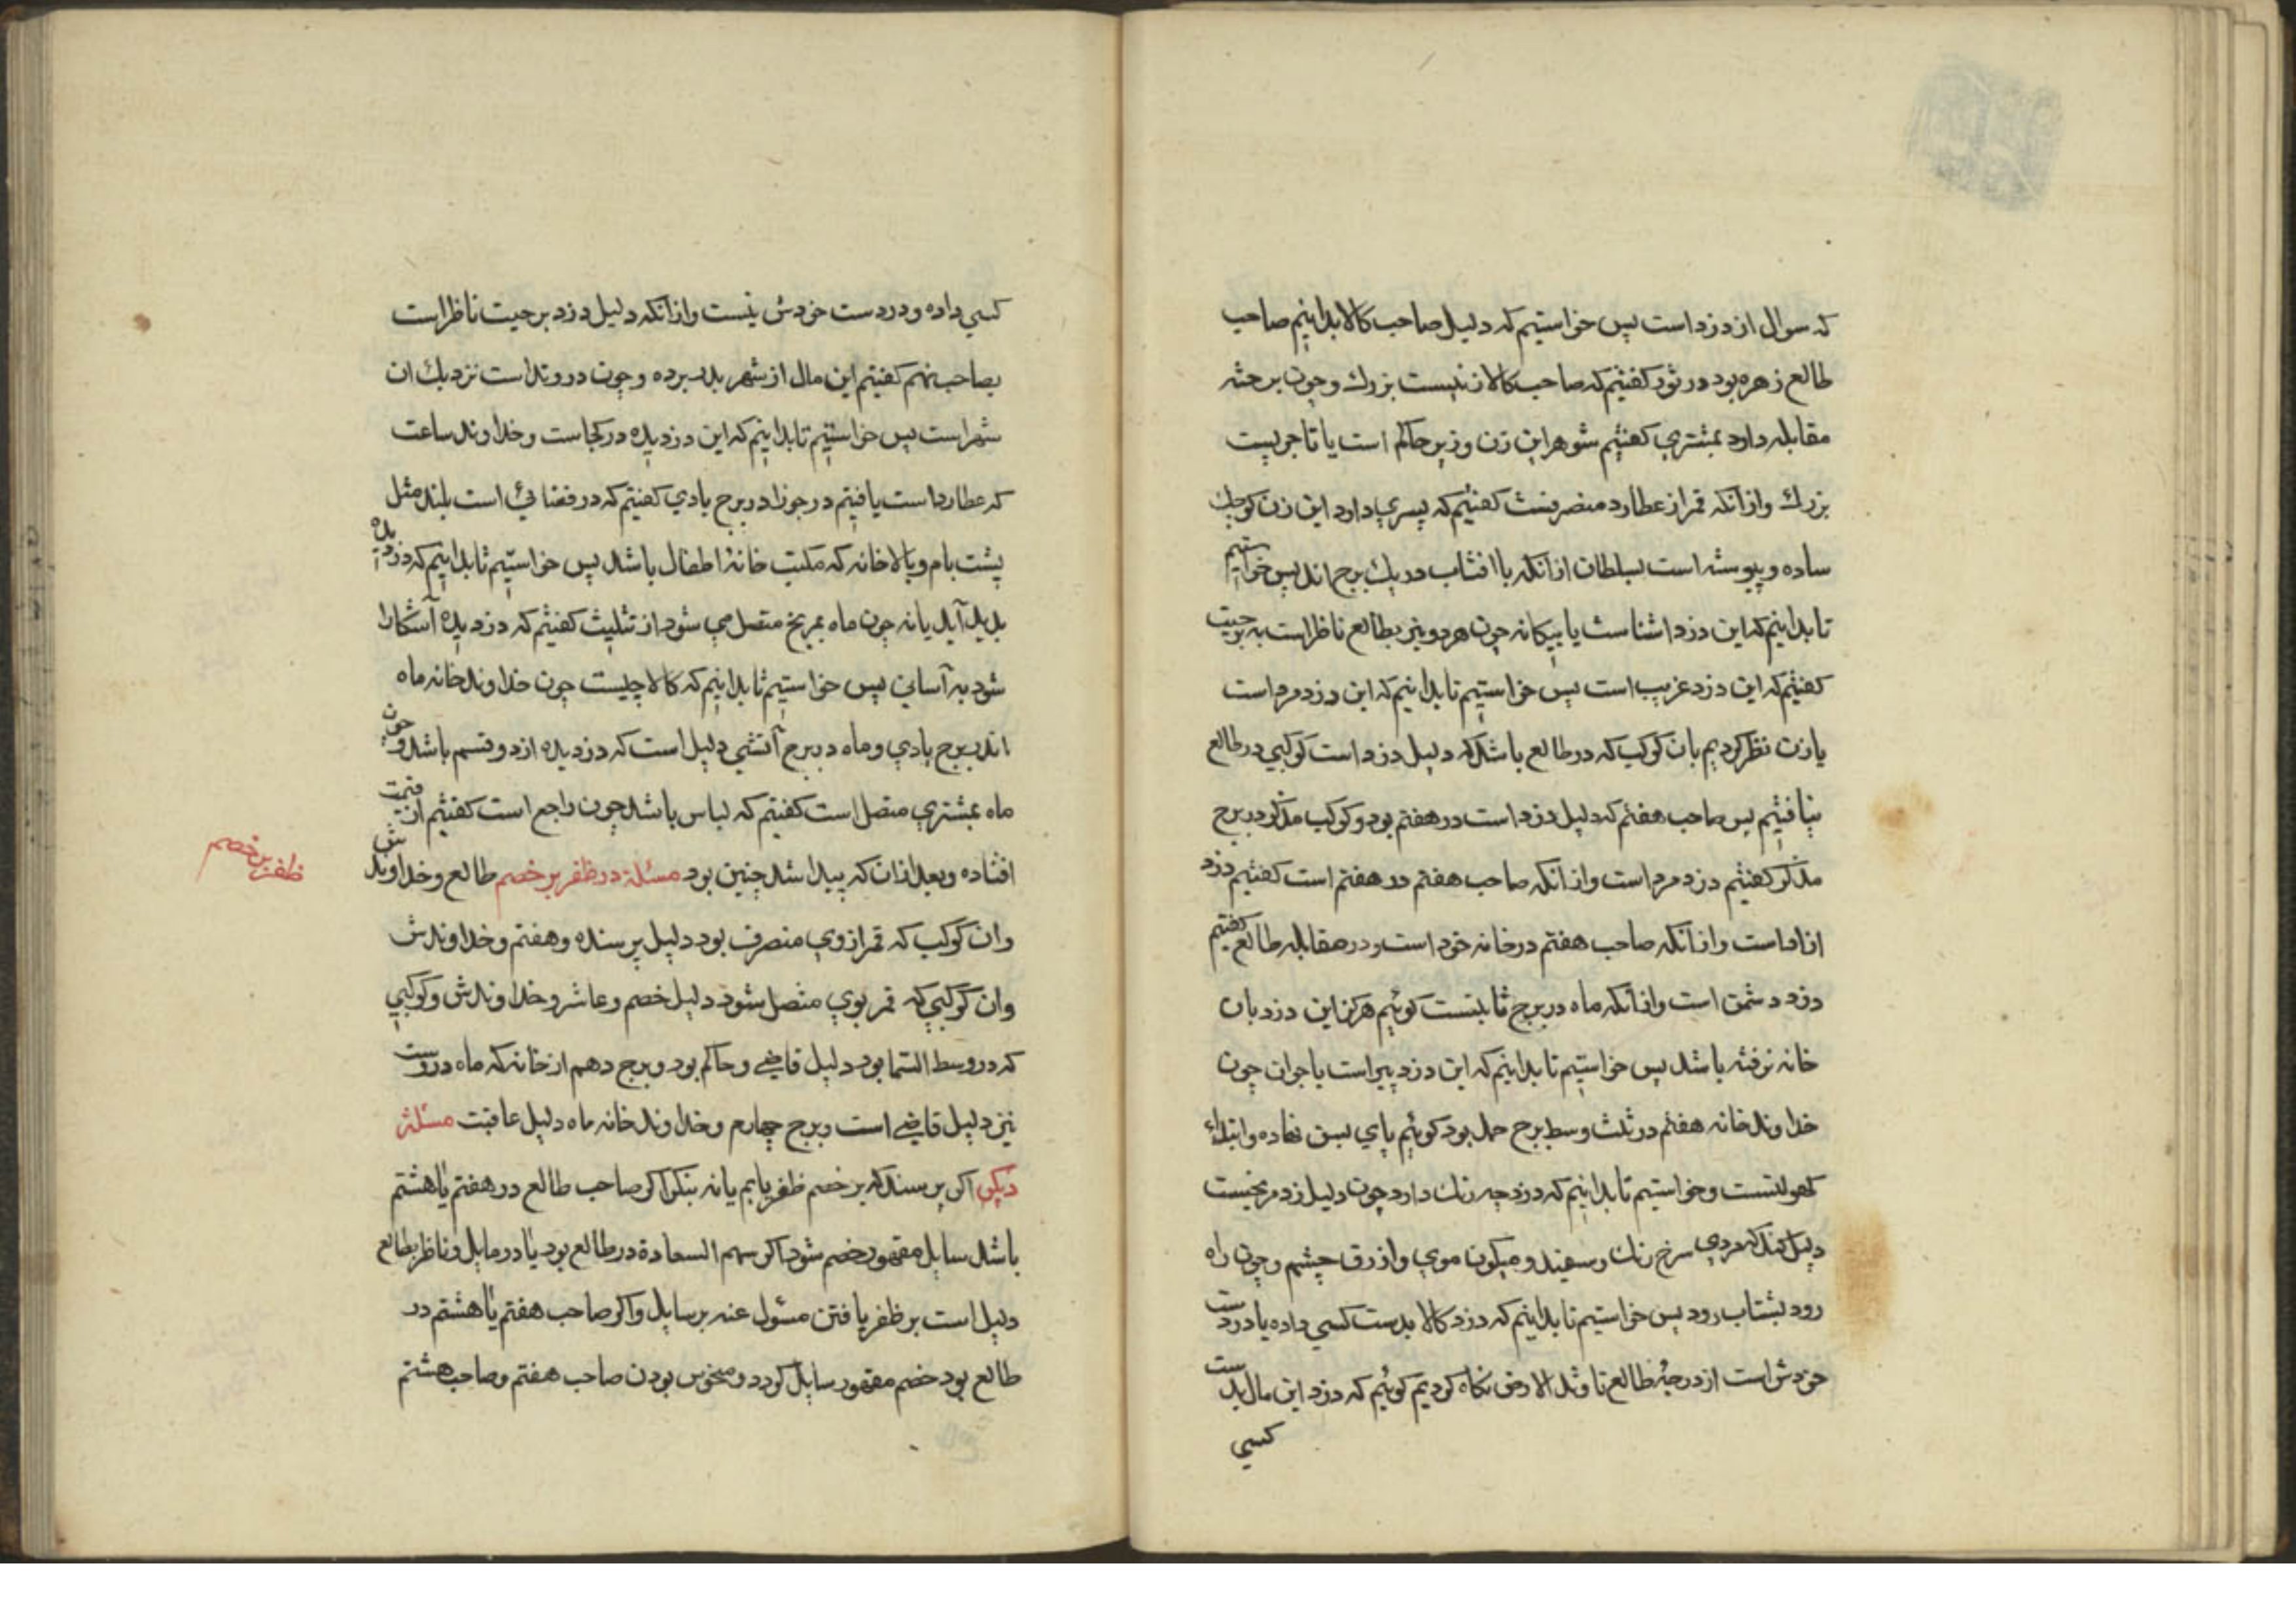 که سوال از دزد است پس خواستیم که دلیل صاحب کالا بدانیم صاحب
طالع زهره بود در ثور کفتیم که صاحب کالا زنیست بزرك وچون برحثه
مقابله دارد بمشتری کفتیم شوهر این زن وزیر حاکم است یا تاجریست
بزرك وازانکه قمر از عطارد منصرفست کفتیم که پسری دارد این زن کوچك
ساده وپیوسته است بسلطان ازانکه باافتاب در یك برج‌اند پس خواستیم
تا بدانیم که این دزد اشناست یا بیکانه چون هردو نیر بطالع ناظر است به برجیت
کفتیم که این دزد غریب است پس خواستیم تا بدانیم که این دزد مرد است
یا زن نظر کردیم بان کوکب که در طالع باشد که دلیل دزد است کوکبی در طالع
نیافتیم پس صاحب هفتم که دلیل دزد است در هفتم بود و کوکب مذکر در برج
مذکر کفتیم دزد مرد است وازانکه صاحب هفتم در هفتم است کفتیم دزد
ازاد است وازانکه صاحب هفتم در خانه خود است ودر مقابله طالع کفتیم
دزد دشمن است وازانکه ماه در برج ثابتست کوئیم هرکز این دزد بان
خانه نرفته باشد پس خواستیم تا بدانیم که این دزد پیر است یا جوان چون
خداوند خانه هفتم در ثلث وسط برج حمل بود کوئیم پای بسن نهاده وابتداء
کهولتست وخواستیم تا بدانیم که دزد چه رنك دارد چون دلیل دزد مریخست
دلیل کند که مردی سرخ رنك وسفید ومیکون موی وازرق چشم وچون راه
رود بشتاب رود پس خواستیم تا بدانیم که دزد کالا بدست کسی داده یا در دست
خودش است از درجهٔ طالع تا وتد الارض نکاه کردیم کوئیم که دزد این مال بدست
کسی
کسی داده ودر دست خودش نیست وازانکه دلیل دزد برجیت ناظر است
بصاحب نهم کفتیم این مال از شهر بدر برده وچون در وتد است نزدیك ان
شهر است پس خواستیم تا بدانیم که این دزدیده در کجاست وخداوند ساعت
که عطارد است یافتیم در جوزا در برج بادی کفتیم که در فضائی است بلند مثل
پشت بام وبالاخانه که مکتب خانهٔ اطفال باشد پس خواستیم تا بدانیم که دزدیده
بدید آید یا نه چون ماه بمریخ متصل می شود از تثلیث کفتیم که دزدیده آشکارا
شود به آسانی پس خواستیم تا بدانیم که کالا چیست چون خداوند خانه ماه
اندر برج بادی وماه در برج آتشی دلیل است که دزدیده از دو قسم باشد وچون
ماه بمشتری متصل است کفتیم که لباس باشد چون راجع است کفتیم از قیمت
افتاده وبعد ازان که پیدا شد چنین بود مسئلة در ظفر بر خصم طالع وخداوندش
ظفر بر خصم
وان کوکب که قمر از وی منصرف بود دلیل پرسنده وهفتم وخداوندش
وان کوکبی که قمر بوی متصل شود دلیل خصم وعاشر وخداوندش وکوکبی
که در وسط السّما بود دلیل قاضی وحاکم بود وبرج دهم از خانه که ماه دروست
نیز دلیل قاضی است وبرج چهارم وخداوند خانه ماه دلیل عاقبت مسئلة
دیکر اکر پرسند که بر خصم ظفر یابم یا نه بنکر اکر صاحب طالع در هفتم یا هشتم
باشد سایل مقهور خصم شود اکر سهم السعادة در طالع بود یا در مایل وناظر بطالع
دلیل است بر ظفر یافتن مسئول عنه بر سایل واکر صاحب هفتم یا هشتم در
طالع بود خصم مقهور سایل کردد ومنحوس بودن صاحب هفتم وصاحب هشتم